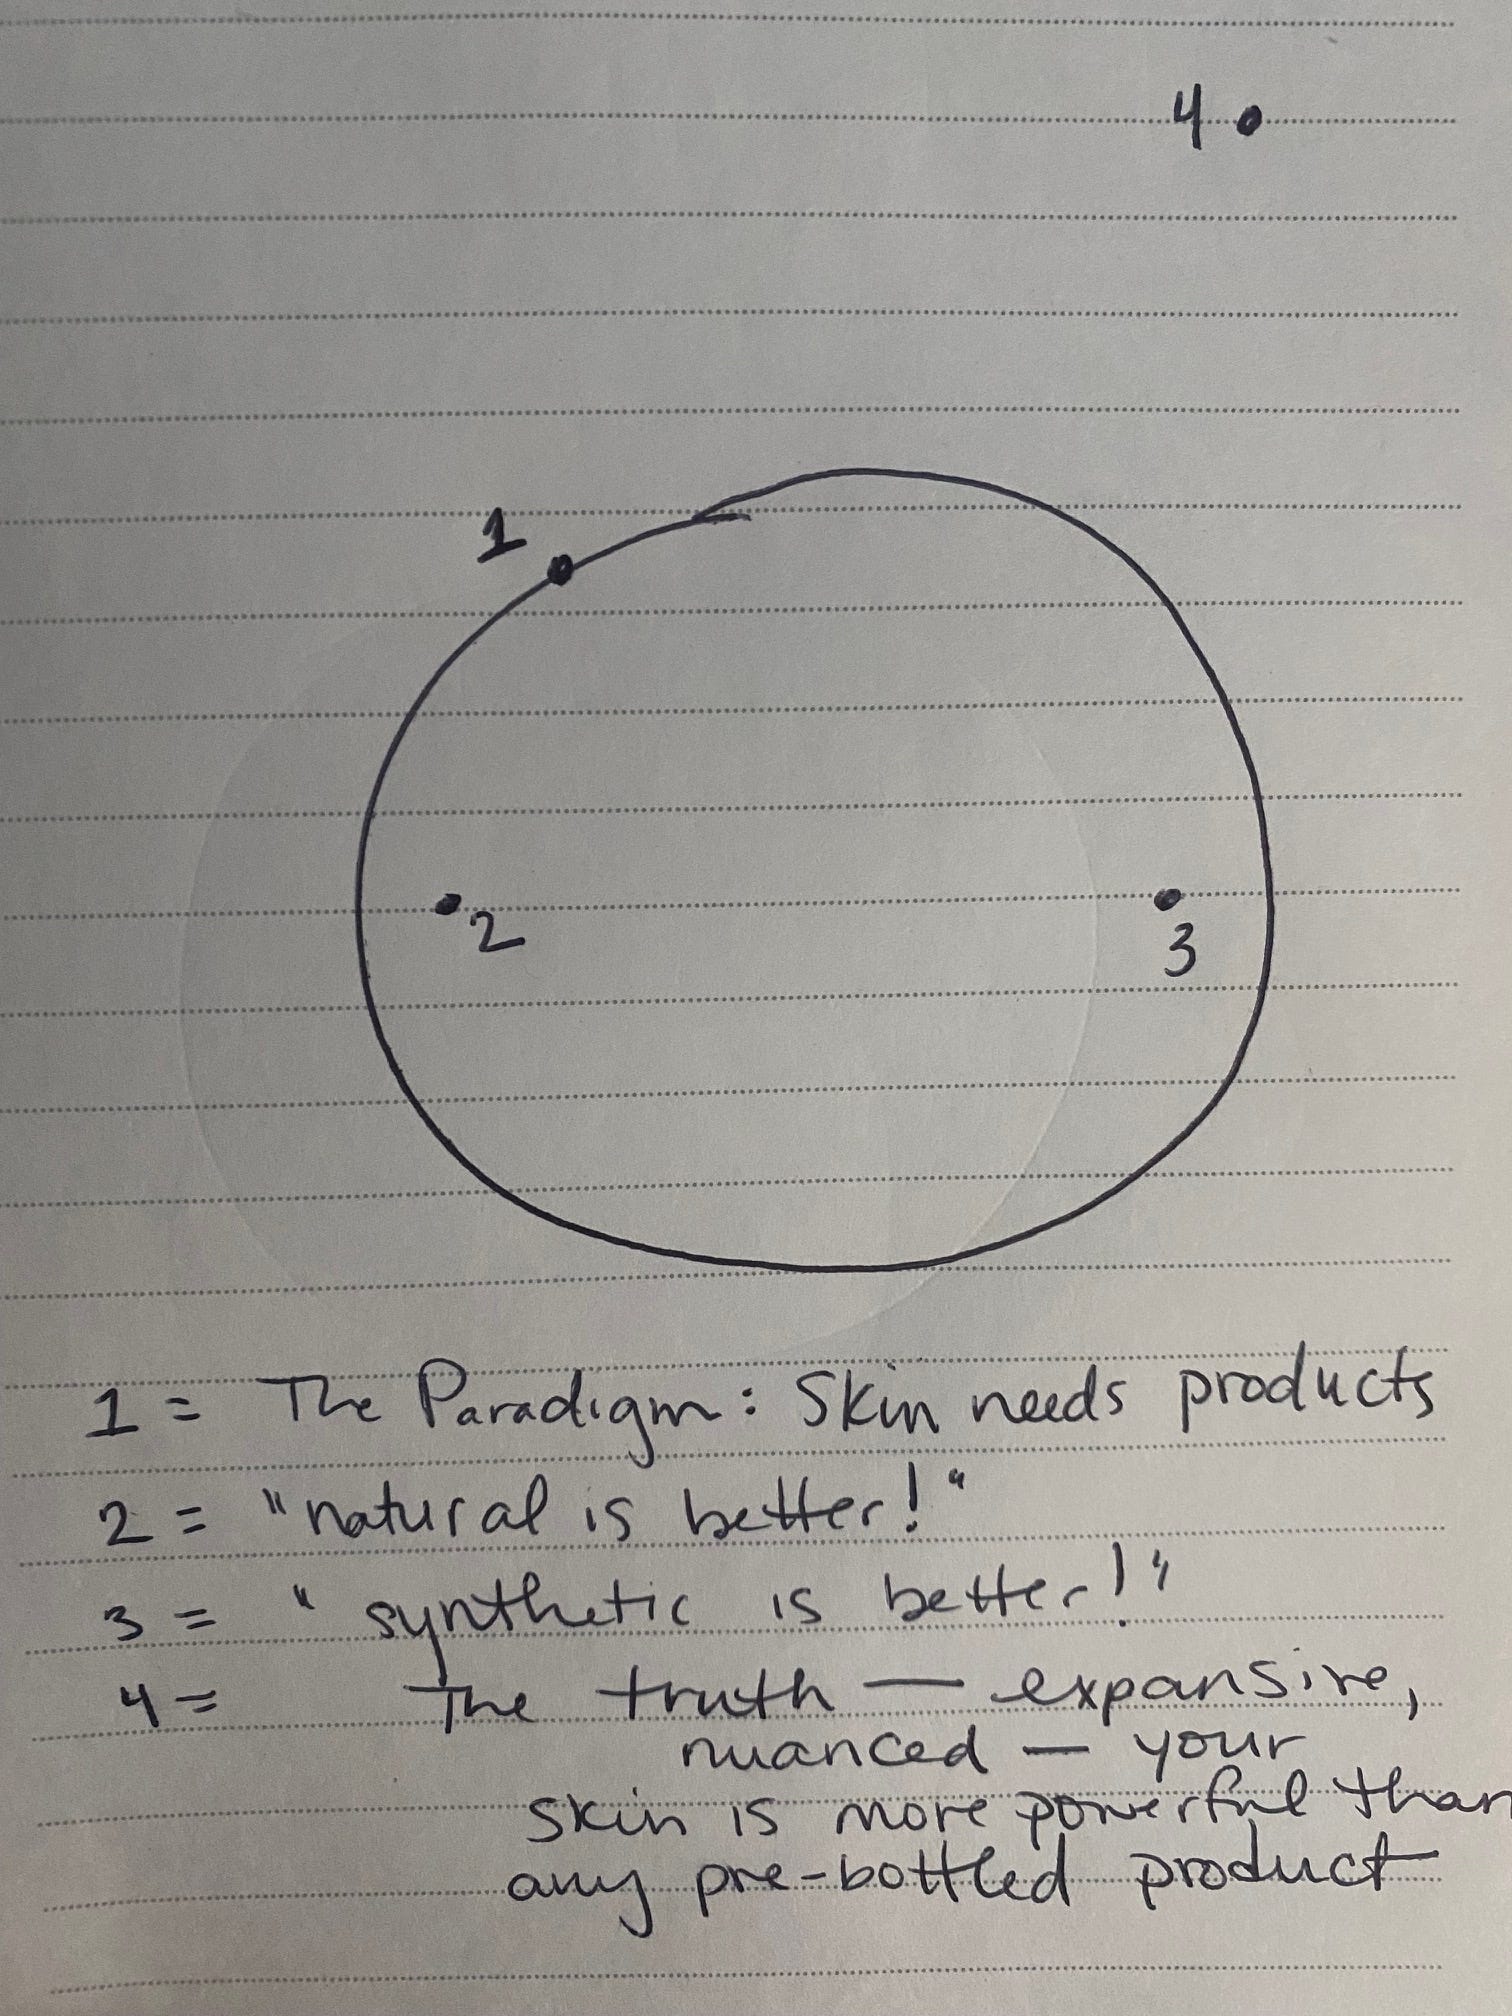 4
1
2
3
1 = The Paradigm: Skin needs products
2 = "natural is better!"
3 = "synthetic is better!"
4 = The truth — expansive,
nuanced — your
skin is more powerful than
any pre-bottled product